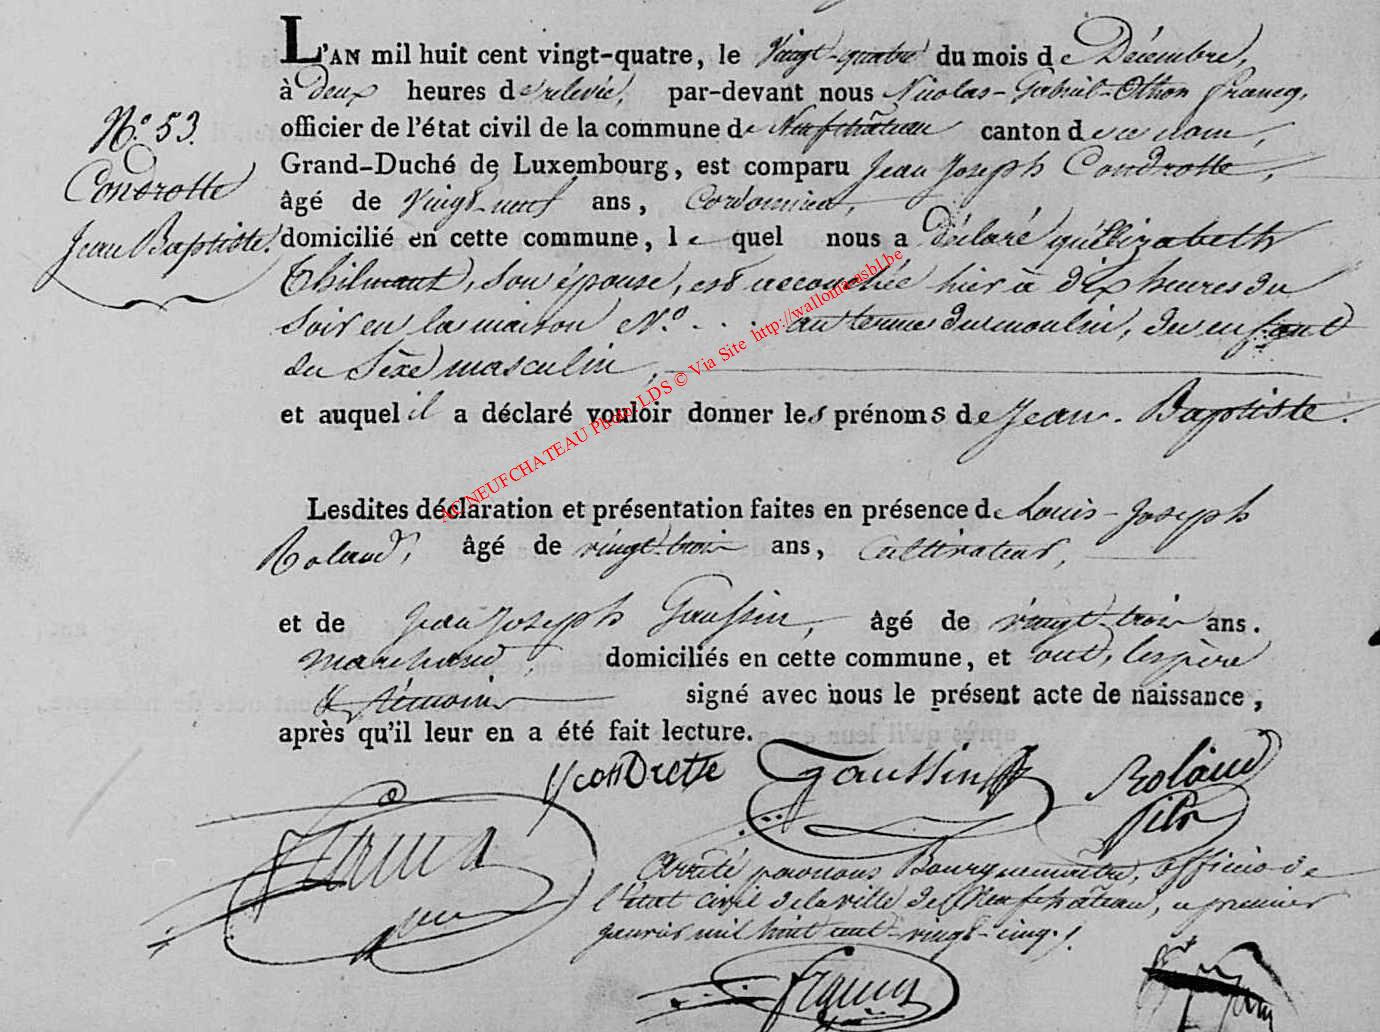 L'AN mil huit cent vingt-quatre, le Vingt-quatre du mois de Décembre,
à deux heures de relevée, par-devant nous Nicolas-Gabriel-Othon Francq,
officier de l'état civil de la commune de Neufchâteau canton de ce nom,
Grand-Duché de Luxembourg, est comparu Jean Joseph Condrotte,
âgé de Vingt-neuf ans, Cordonnier,
domicilié en cette commune, le quel nous a déclaré qu'Elizabeth
Thilmant, son épouse, est accouchée hier à dix heures du
soir en la maison N.º . . . au terme du moulin, du enfant
du Sexe masculin,
et auquel il a déclaré vouloir donner les prénoms de Jean-Baptiste.
N.º 53.
Condrotte
Jean Baptiste.
Lesdites déclaration et présentation faites en présence de Louis-Joseph
Roland, âgé de vingt-trois ans, Cultivateur,
et de Jean Joseph Gaussin, âgé de vingt-trois ans.
Marchand, domiciliés en cette commune, et ont, les père
& témoins signé avec nous le présent acte de naissance,
après qu'il leur en a été fait lecture.
Condrotte Gaussin Roland
fils
Francq
Arrêté par nous Bourguemaître, officier de
l'état civil de la ville de Neufchâteau, ce premier
janvier mil huit cent vingt-cinq.
Francq
AC NEUFCHATEAU Photo. LDS © Via Site http://wallonia-asbl.be